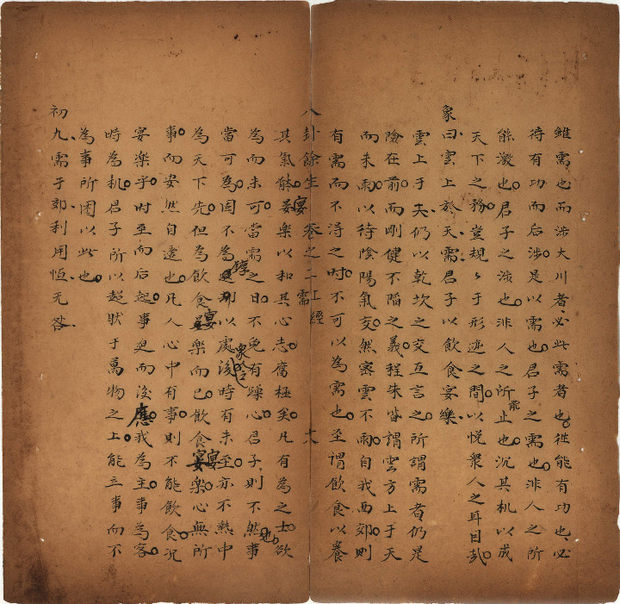 雖需也而涉大川者必此需者也徃能有功也必
待有功而后涉是以需也君子之需也非人之所
能激也君子之涉也非人之所能止也沉其机以成
天下之務豈規々于形迹之間以悦衆人之耳目哉
象曰雲上於天需君子以飲食宴樂
雲上于天仍以乾坎之交互言之所謂需者仍是
險在前而剛健不陷之義程朱皆謂雲方上于天
而未雨以待陰陽氣交然密雲不雨自我西郊則
有需而不淂之时不可以為需也至謂飲食以養
八卦餘生 卷之二 需 上經 十六
其氣體宴樂以和其心志腐極矣凡有為之士欲
為而未可當需之日不免有躁心君子則不然事
當可為因不為以處後時有未至亦不熱中
為天下先但為飲食宴樂而已飲食宴樂心無所
事而安然自適也凡人心中有事則不能飲食況
宴樂乎时至而后起事更而後應我為主事為客
時為机君子所以超狀于萬物之上能立事而不
為事所困以此也
初九需于郊利用恆无咎